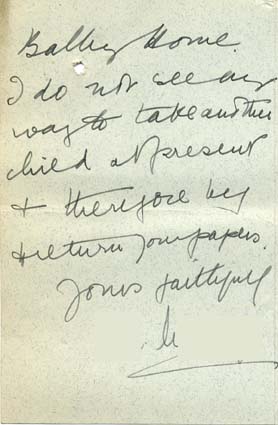 Home.
I do not see any
way to take another
child at present
& therefore beg
to return your papers.
Yours faithfully